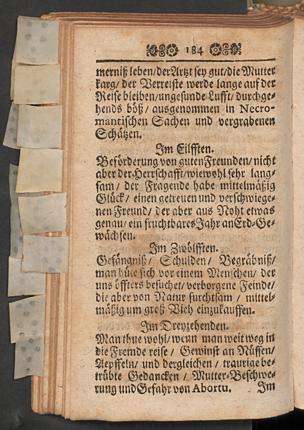 184
merniß leben/der Artzt sey gut/die Mutter
karg/ der Verreiste werde lange auf der
Reise bleiben/ungesunde Lufft/ durchge-
hends böß/ ausgenommen in Necro-
mantischen Sachen und vergrabenen
Schätzen.
Im Eilfften.
Beförderung von guten Freunden/nicht
aber der Herrschafft/wiewohl sehr lang-
sam/ der Fragende habe mittelmäßig
Glück/ einen getreuen und verschwiege-
nen Freund/ der aber aus Noht etwas
genau/ein fruchtbares Jahr an Erd-Ge-
wächsen.
Im Zwölfften.
Gefängniß/ Schulden/ Begräbniß/
man hüte sich vor einem Menschen/ der
uns öffters besuchet/ verborgene Feinde/
die aber von Natur furchtsam/ mittel-
mäßig um groß Vieh einzukauffen.
Im Dreyzehenden.
Man thue wohl/wenn man weit weg in
die Fremde reise/ Gewinst an Nüssen/
Aepffeln/ und dergleichen/ traurige be-
trübte Gedancken/ Mutter-Beschwe-
rung und Gefahr von Abortu.
Im